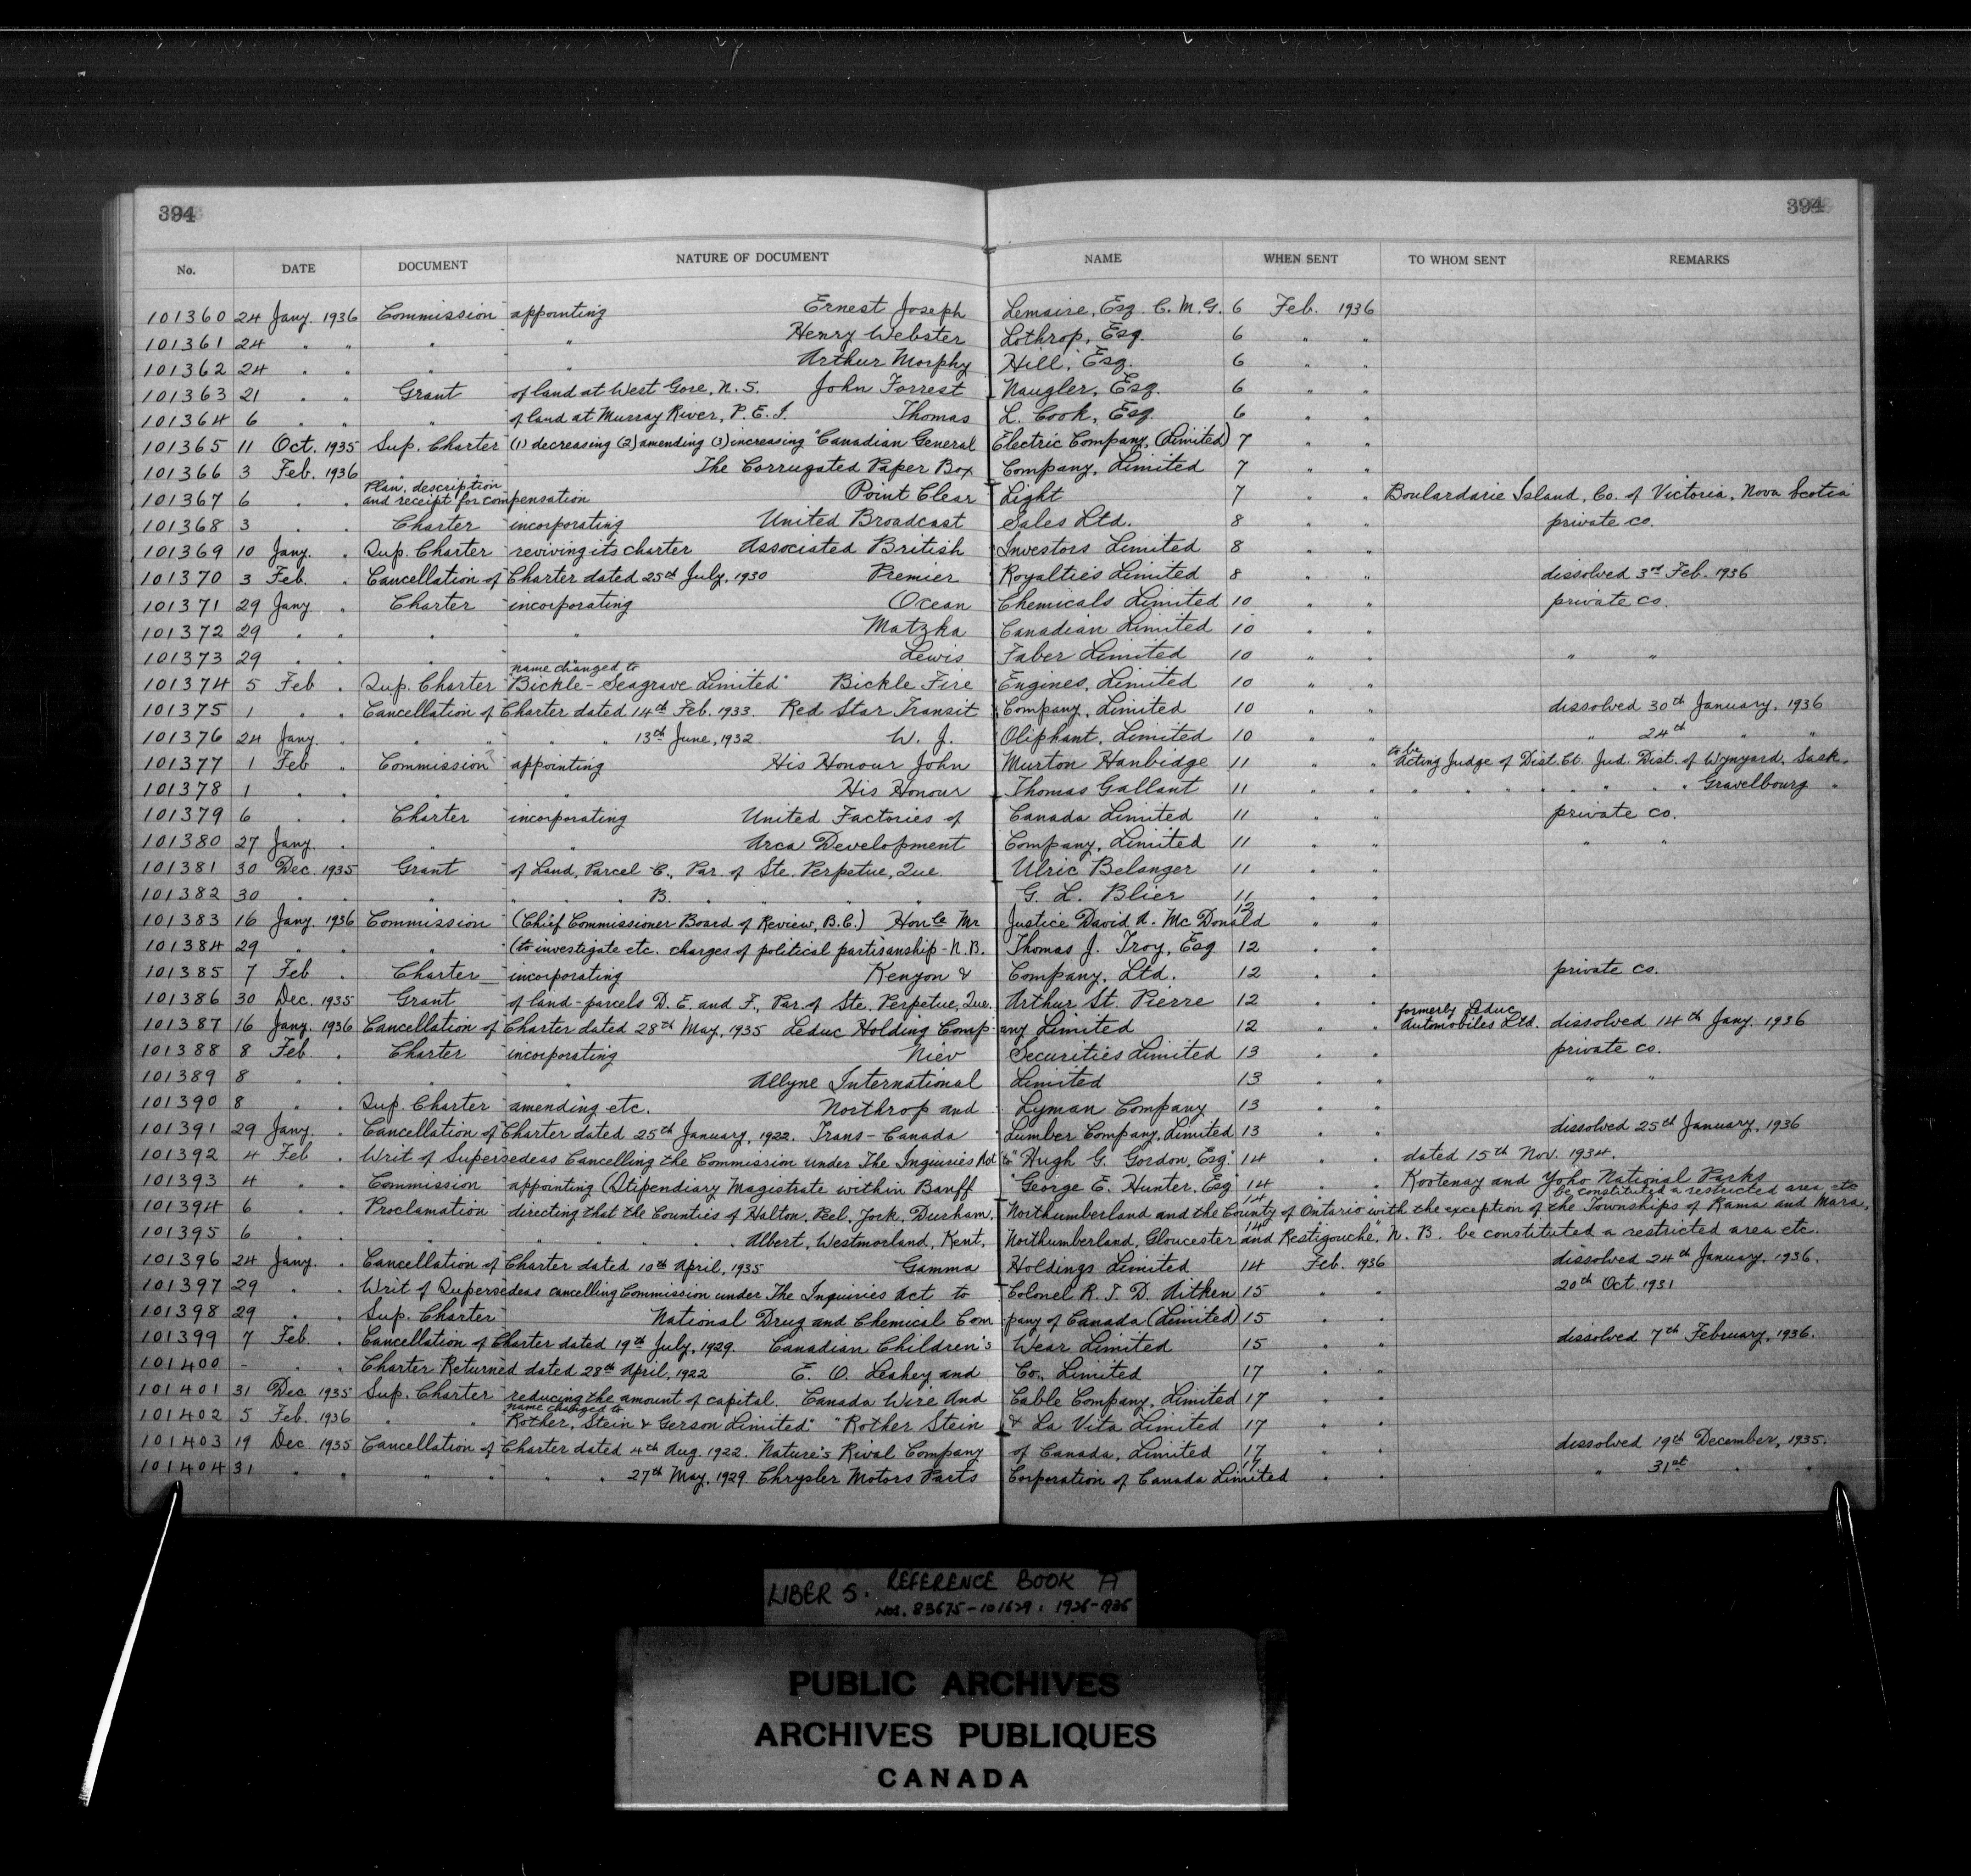 394 394
No. DATE DOCUMENT NATURE OF DOCUMENT NAME WHEN SENT TO WHOM SENT REMARKS
101360 24 Jany. 1936 Commission appointing Ernest Joseph Lemaire, Esq. C. M. G. 6 Feb. 1936
101361 24 " " " " Henry Webster Lothrop, Esq. 6 " "
101362 24 " " " " Arthur Morphy Hill, Esq. 6 " "
101363 21 " " Grant of land at West Gore, N. S. John Forrest Naugler, Esq. 6 " "
101364 6 " " " of land at Murray River, P. E. I. Thomas L. Cook, Esq. 6 " "
101365 11 Oct. 1935 Sup. Charter (1) decreasing (2) amending (3) increasing "Canadian General Electric Company, (Limited) 7 " "
101366 3 Feb. 1936 " " The Corrugated Paper Box Company, Limited 7 " "
101367 6 " " Plan, description and receipt for compensation Point Clear Light 7 " " Boulardarie Island, Co. of Victoria, Nova Scotia
101368 3 " " Charter incorporating United Broadcast Sales Ltd. 8 " " private co.
101369 10 Jany. " Sup. Charter reviving its charter Associated British Investors Limited 8 " "
101370 3 Feb. " Cancellation of Charter dated 25th July, 1930 Premier Royalties Limited 8 " " dissolved 3rd Feb. 1936
101371 29 Jany " Charter incorporating Ocean Chemicals Limited 10 " " private co.
101372 29 " " " " Matzka Canadian Limited 10 " "
101373 29 " " " Lewis Faber Limited 10 " " " "
101374 5 Feb " Sup. Charter name changed to "Bickle-Seagrave Limited" Bickle Fire Engines, Limited 10 " "
101375 1 " " Cancellation of Charter dated 14th Feb. 1933. Red Star Transit Company, Limited 10 " " dissolved 30th January, 1936
101376 24 Jany. " " " " " 13th June, 1932 W. J. Oliphant, Limited 10 " " " 24th " "
101377 1 Feb " Commission appointing His Honour John Murton Hanbidge 11 " " to be Acting Judge of Dist. Ct. Jud. Dist. of Wynyard, Sask.
101378 1 " " " " His Honour Thomas Gallant 11 " " " " " " " " " Gravelbourg "
101379 6 " " Charter incorporating United Factories of Canada Limited 11 " " private co.
101380 27 Jany. " " " Arca Development Company, Limited 11 " " " "
101381 30 Dec. 1935 Grant of Land, Parcel C., Par. of Ste. Perpetue, Que. Ulric Belanger 11 " "
101382 30 " " " " " " B. " " " " G. L. Blier 11 " "
101383 16 Jany. 1936 Commission (Chief Commissioner Board of Review, B.C.) Honble Mr Justice David A. McDonald 12 " "
101384 29 " " " (to investigate etc. charges of political partisanship - N. B. Thomas J. Troy, Esq 12 " "
101385 7 Feb " Charter incorporating Kenyon & Company, Ltd. 12 " " private co.
101386 30 Dec. 1935 Grant of land - parcels D. E. and F., Par. of Ste. Perpetue, Que. Arthur St. Pierre 12 " "
101387 16 Jany. 1936 Cancellation of Charter dated 28th May, 1935 Leduc Holding Company Limited 12 " " formerly Leduc Automobiles Ltd. dissolved 14th Jany. 1936
101388 8 Feb. " Charter incorporating Niev Securities Limited 13 " " private co.
101389 8 " " " " Allyne International Limited 13 " " " "
101390 8 " " Sup. Charter amending etc. Northrop and Lyman Company 13 " "
101391 29 Jany. " Cancellation of Charter dated 25th January, 1922. Trans-Canada Lumber Company, Limited 13 " " dissolved 25th January, 1936
101392 4 Feb " Writ of Supersedeas Cancelling the Commission under The Inquiries Act to "Hugh G. Gordon, Esq." 14 " " dated 15th Nov. 1934.
101393 4 " " Commission appointing Stipendiary Magistrate within Banff "George E. Hunter, Esq" 14 " " Kootenay and Yoho National Parks
101394 6 " " Proclamation directing that the Counties of Halton, Peel, York, Durham, Northumberland and the County of Ontario with the exception of the Townships of Rama and Mara, be constituted a restricted area etc 14
101395 6 " " " " " " " Albert, Westmorland, Kent, Northumberland, Gloucester and Restigouche, N. B. be constituted a restricted area etc. 14
101396 24 Jany. " Cancellation of Charter dated 10th April, 1935 Gamma Holdings Limited 14 Feb. 1936 dissolved 24th January, 1936.
101397 29 " " Writ of Supersedeas cancelling Commission under The Inquiries Act to Colonel R. T. D. Aitken 15 " " 20th Oct. 1931
101398 29 " " Sup. Charter National Drug and Chemical Company of Canada (Limited) 15 " "
101399 7 Feb. " Cancellation of Charter dated 19th July, 1929. Canadian Children's Wear Limited 15 " " dissolved 7th February, 1936.
101400 - " " Charter Returned dated 28th April, 1922 E. O. Leahey and Co., Limited 17 " "
101401 31 Dec 1935 Sup. Charter reducing the amount of capital. Canada Wire And Cable Company, Limited 17 " "
101402 5 Feb. 1936 " " name changed to "Rother, Stein & Gerson Limited" "Rother Stein & La Vita Limited 17 " "
101403 19 Dec 1935 Cancellation of Charter dated 4th Aug. 1922. Nature's Rival Company of Canada, Limited 17 " " dissolved 19th December, 1935.
101404 31 " " " " " " 27th May, 1929 Chrysler Motors Parts Corporation of Canada Limited 17 " " " 31st " "
LIBER 5. REFERENCE BOOK A
NOS. 83675-101629. 1926-1936
PUBLIC ARCHIVES
ARCHIVES PUBLIQUES
CANADA